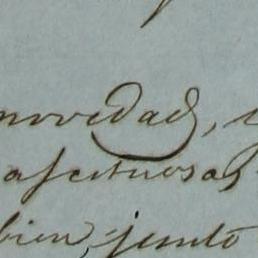 novedad,
afectuosas
bien, junto